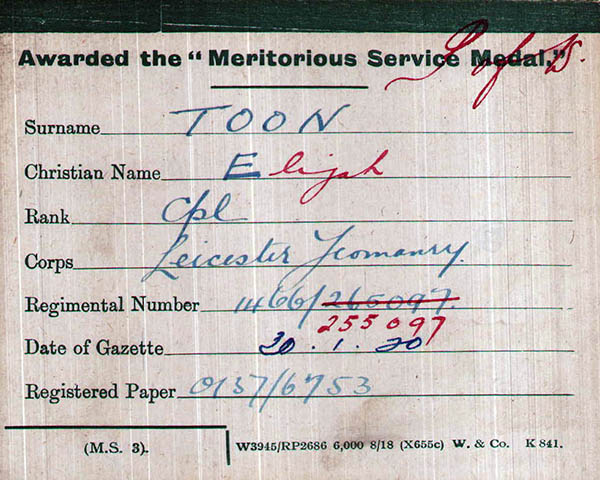 Awarded the "Meritorious Service Medal."
S of S.
Surname TOON
Christian Name Elijah
Rank Cpl
Corps Leicester Yeomanry.
Regimental Number 1466/265097.
255097
Date of Gazette 30.1.20
Registered Paper 0137/6753
(M.S. 3).
W3945/RP2686 6,000 8/18 (X655c) W. & Co. K 841.